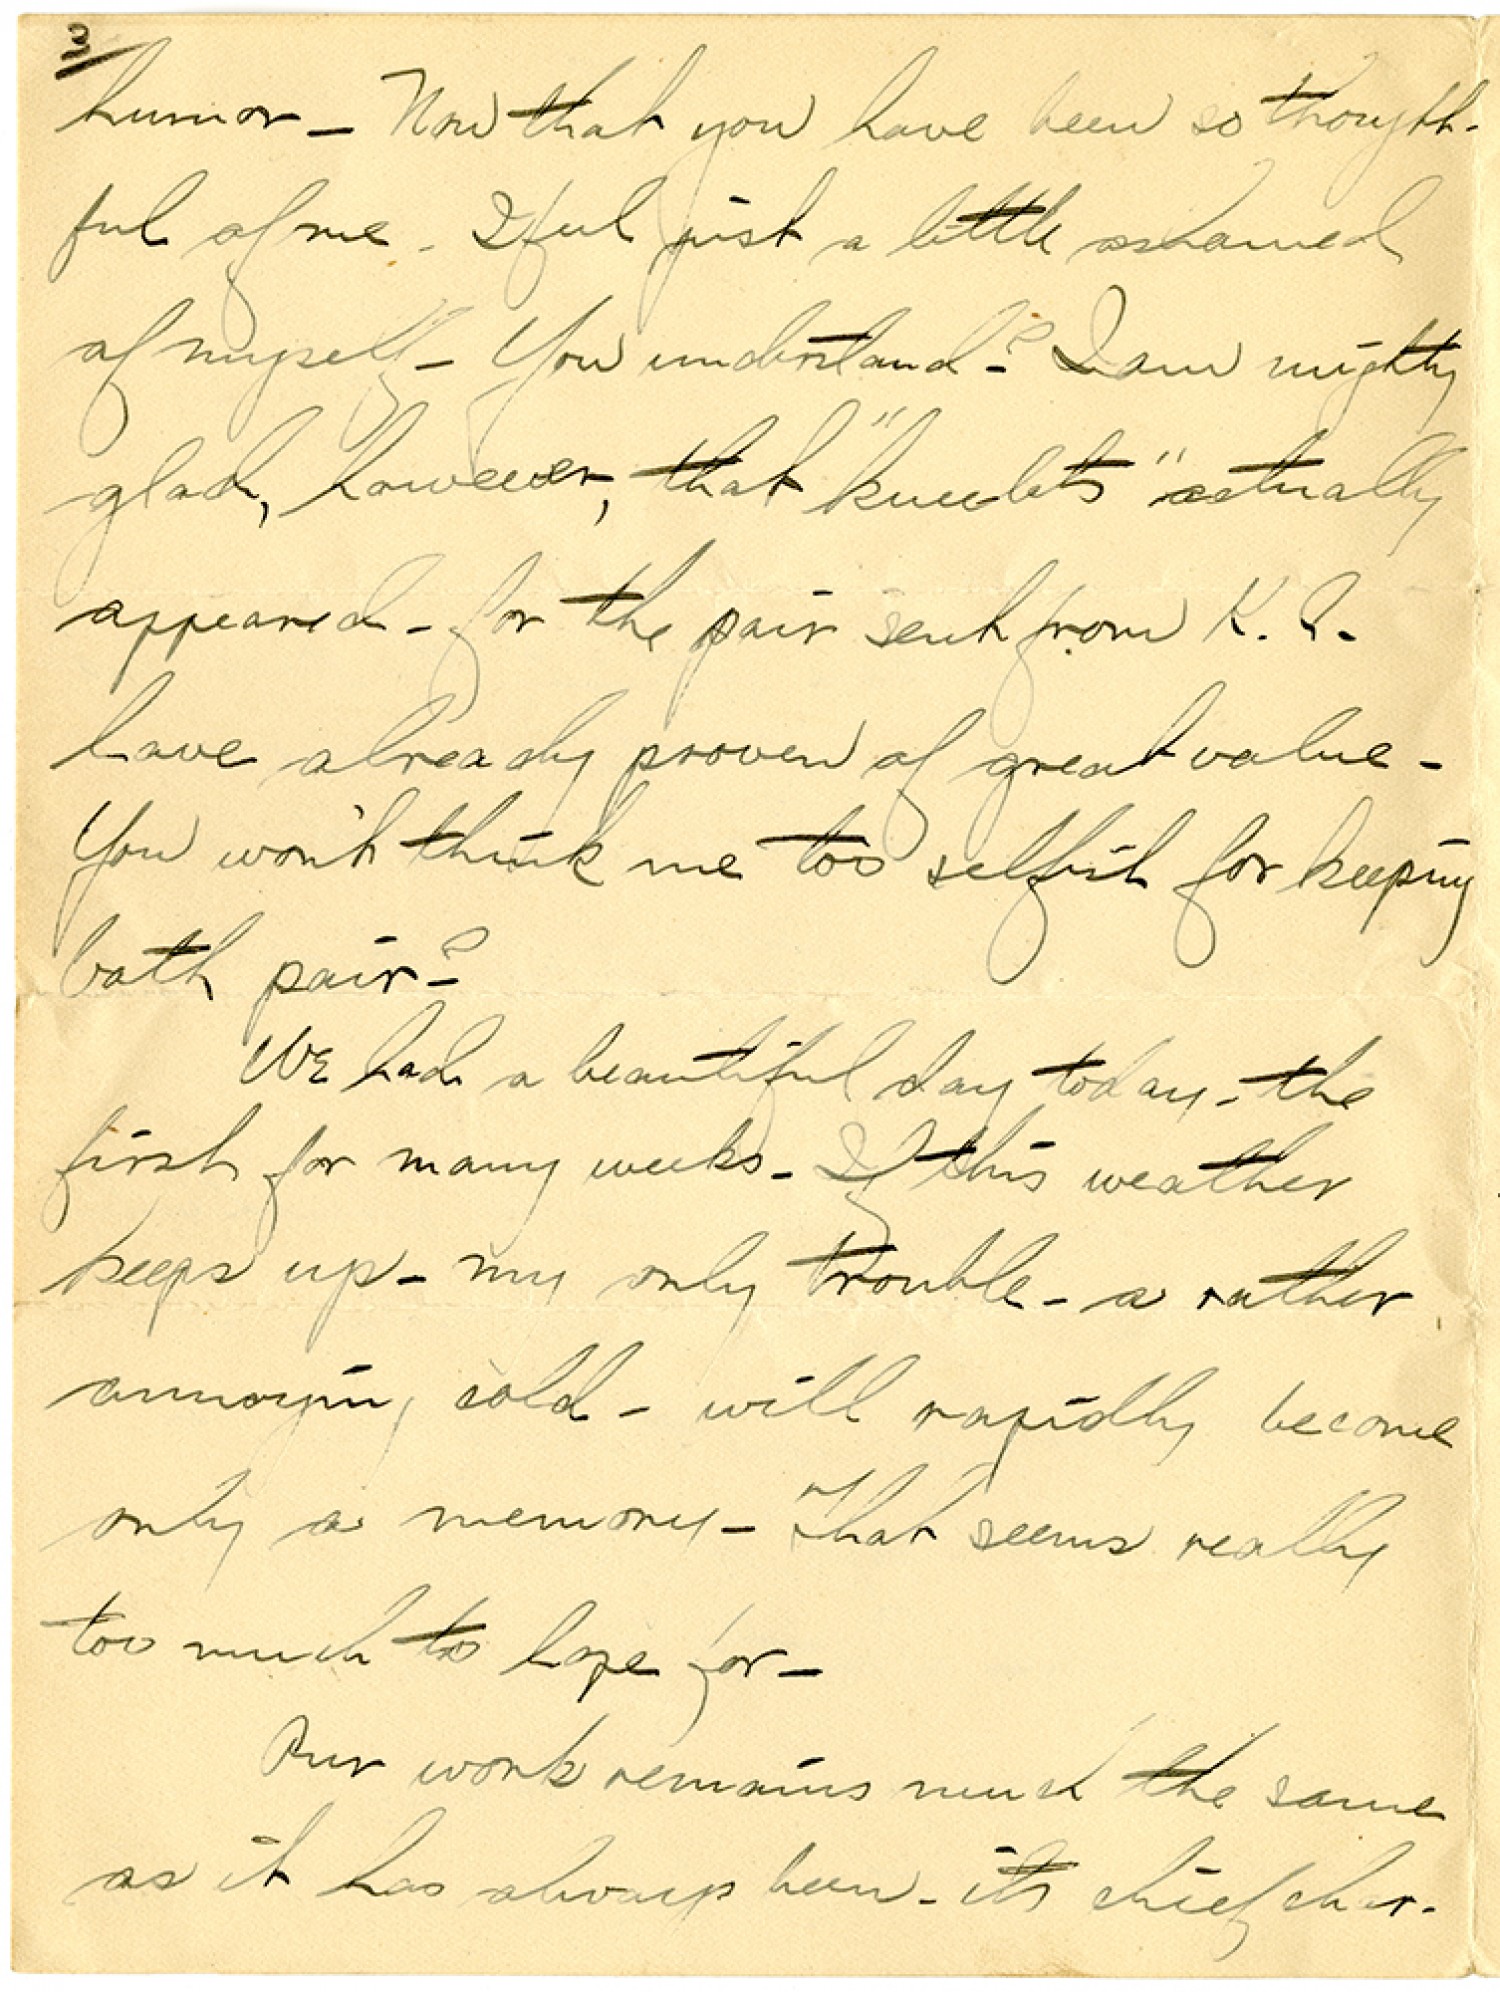 3
humor - Now that you have been so thought-
ful of me - I feel just a little ashamed
of myself - You understand? I am mighty
glad, however, that "kneelets" actually
appeared - for the pair sent from K.
have already proven of great value -
You won't think me too selfish for keeping
both pair?
We had a beautiful day today - the
first for many weeks - If this weather
keeps up - my only trouble - a rather
annoying cold - will rapidly become
only a memory - That seems really
too much to hope for -
Our work remains much the same
as it has always been - its chief char-